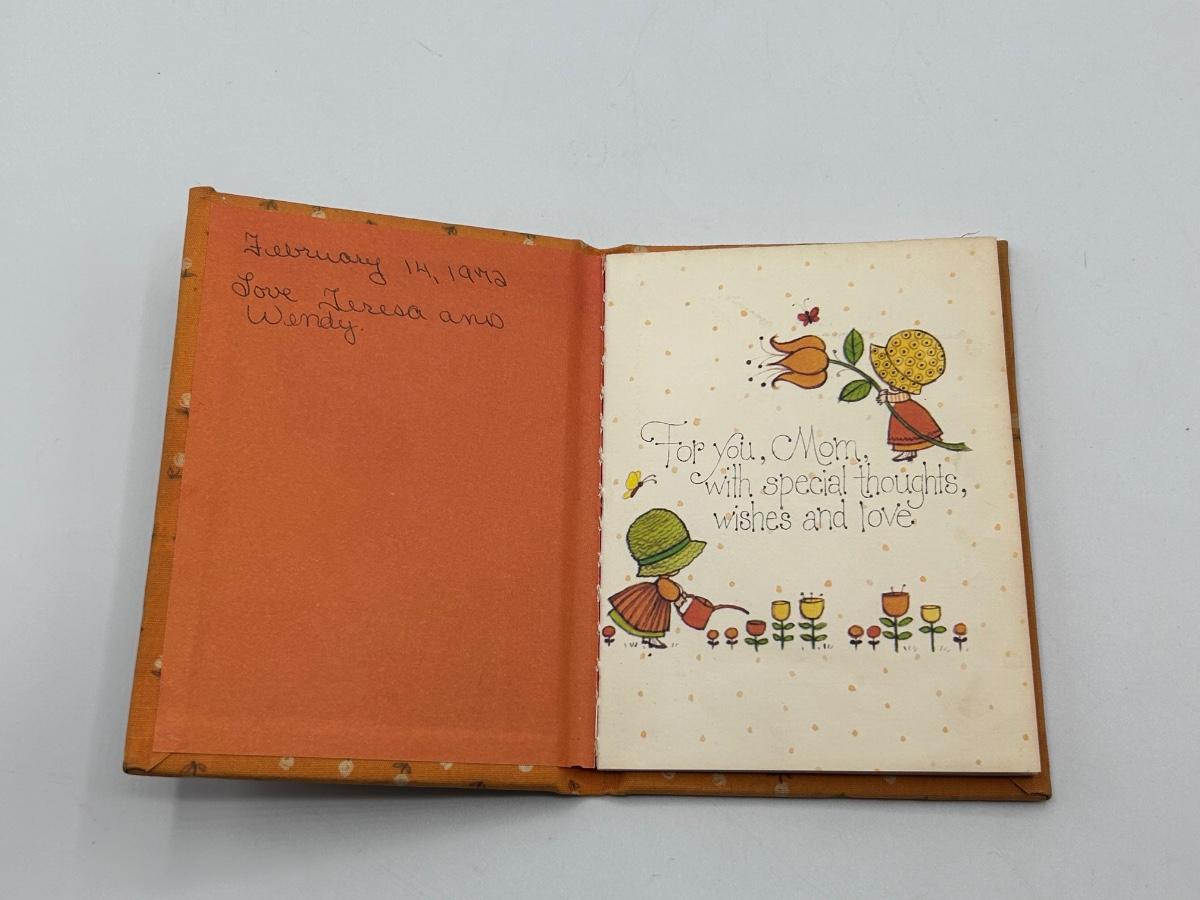 February 14, 1972
Love Teresa and
Wendy.
For you, Mom,
with special thoughts,
wishes and love.